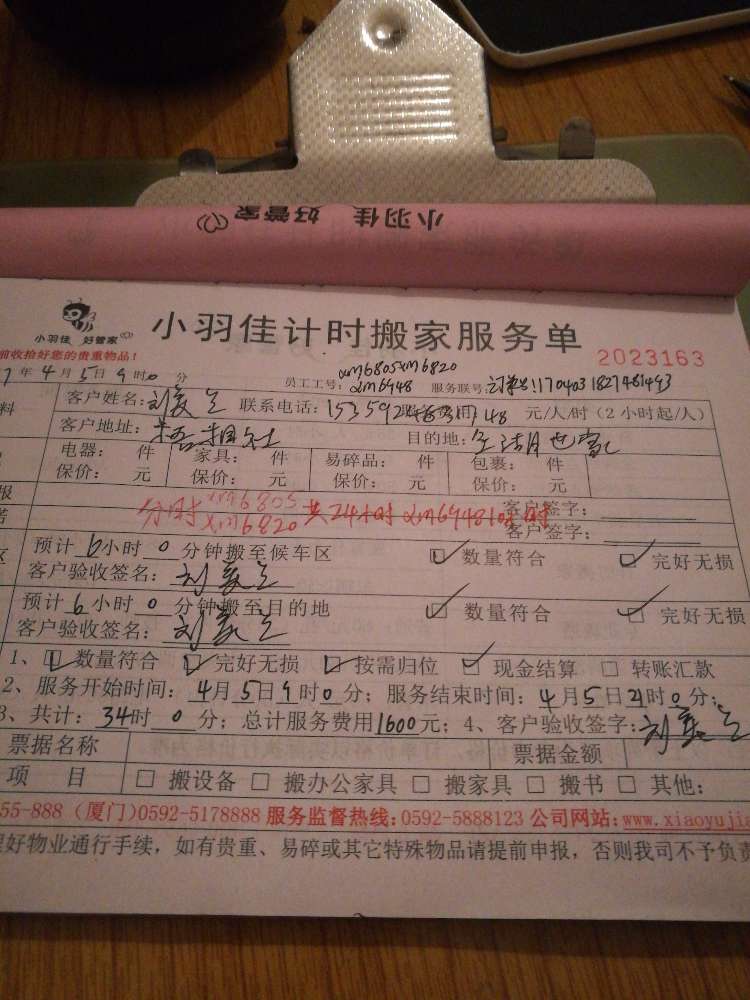 小羽佳 好管家
小羽佳 好管家
小羽佳计时搬家服务单
2023163
前收拾好您的贵重物品!
7年4月5日9时0分 员工工号: xm6805xm6820 xm6948 服务联号:
客户姓名: 刘 联系电话: 48 元/人/时 (2小时起/人)
客户地址: 目的地: 金湖
电器: 件 家具: 件 易碎品: 件 包裹: 件
保价: 元 保价: 元 保价: 元 保价: 元
分时 xm6805 xm6820 共24小时 xm6948 10小时
客户签字:
客户签字:
预计6小时0分钟搬至候车区 数量符合 完好无损
客户验收签名: 刘
预计6小时0分钟搬至目的地 数量符合 完好无损
客户验收签名: 刘
1、 数量符合 完好无损 按需归位 现金结算 转账汇款
2、服务开始时间: 4月5日9时0分; 服务结束时间: 4月5日21时0分;
3、共计: 34时0分; 总计服务费用1600元; 4、客户验收签字: 刘
票据名称 票据金额
项目 搬设备 搬办公家具 搬家具 搬书 其他:
55-888 (厦门)0592-5178888 服务监督热线:0592-5888123 公司网站:www.xiaoyujia
理好物业通行手续, 如有贵重、易碎或其它特殊物品请提前申报, 否则我司不予负责